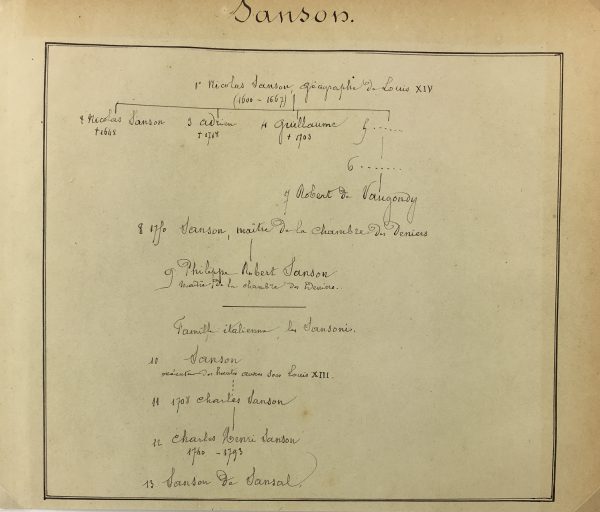 Sanson.
1º Nicolas Sanson, géographe de Louis XIV
(1600 - 1667)
2 Nicolas Sanson 3 adrien 4 guillaume 5 .......
†1648 †1718 †1703
6 ........
7 Robert de Vaugondy
8 1750 Sanson, maître de la chambre des Deniers
9 Philippe Robert Sanson
maître de la chambre des Deniers..
Famille italienne, les Sansoni.
10 Sanson
exécuteur des hautes œuvres sous Louis XIII.
11 1708 Charles Sanson
12 Charles Henri Sanson
1740 - 1793
13 Sanson de Sansal.